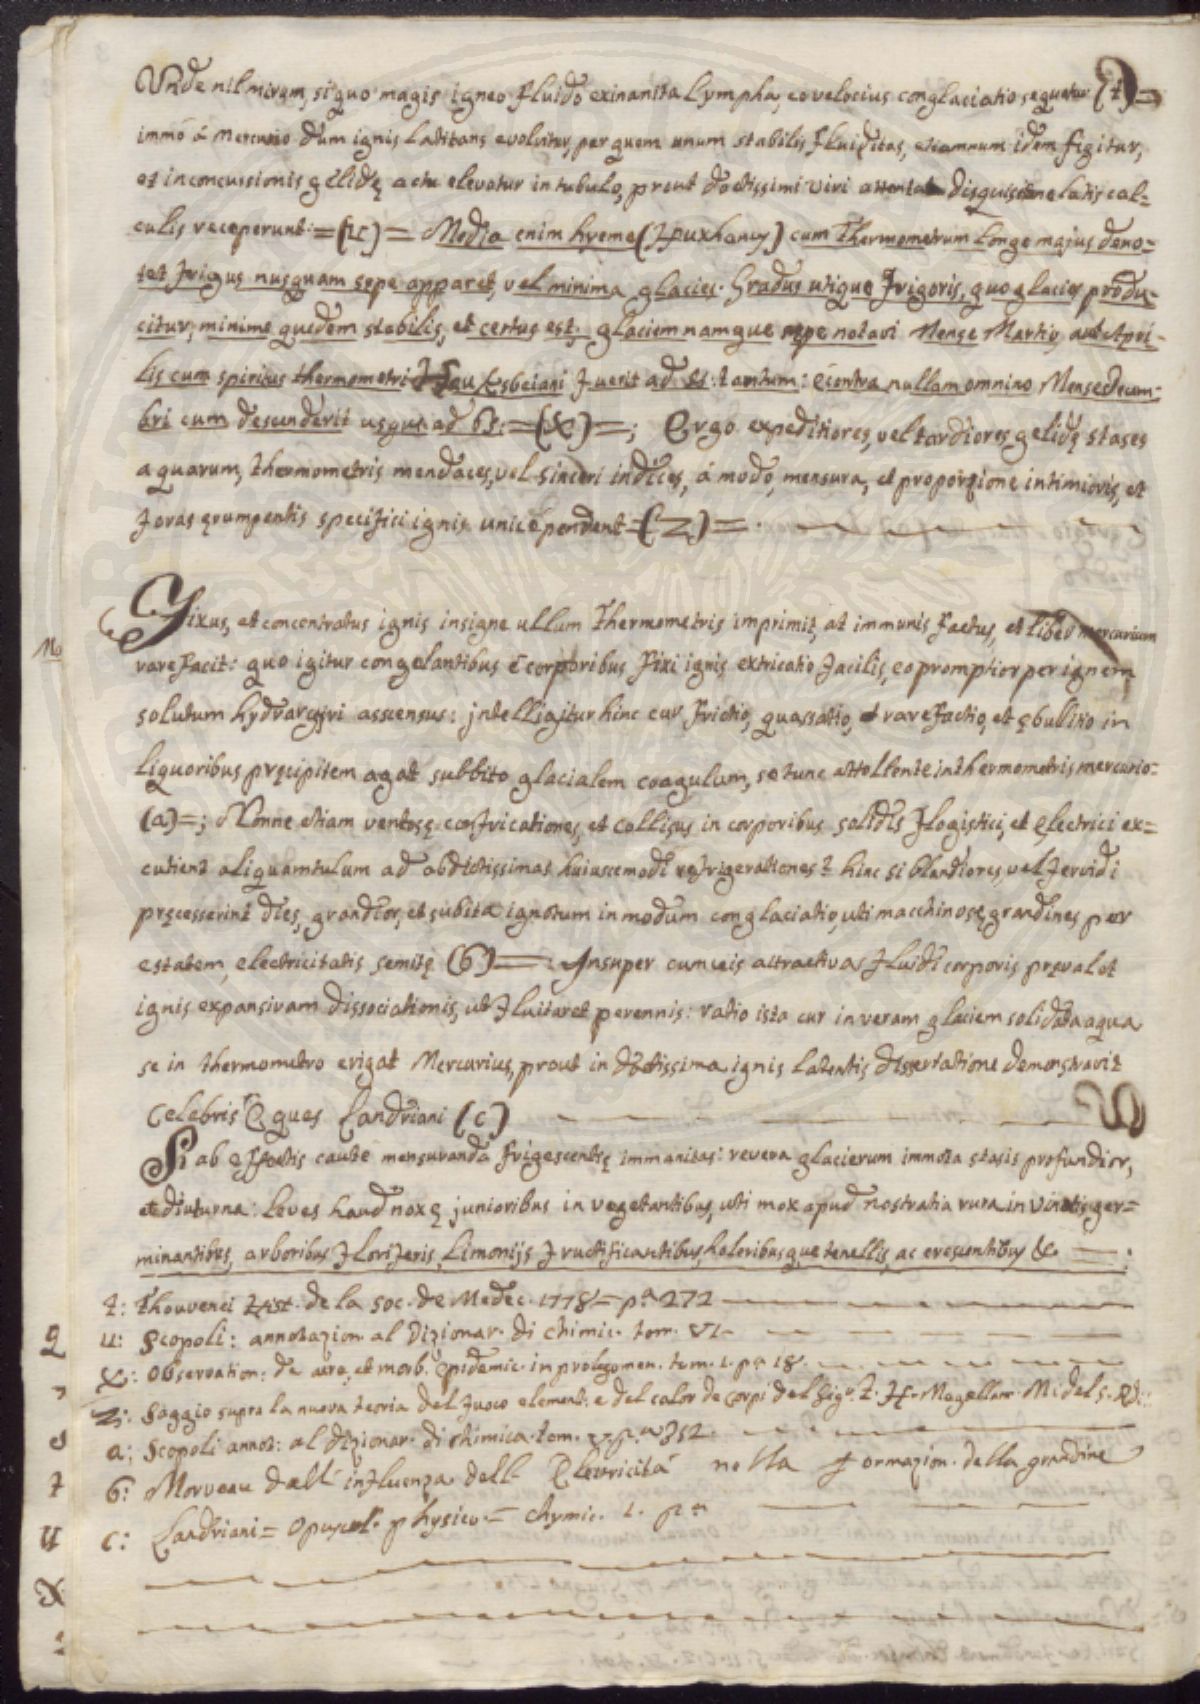 Unde nil mirum, si quo magis igneo fluido exinanita lympha, eo velocius conglaciatio sequatur (t)=
immò à Mercurio dum ignis latitans evolvitur, per quem unum stabilis fluiditas, etiamnum idem figitur,
et in concussionis gelidę actu elevatur in tubulo, prout doctissimi viri disquisitione latis cal=
culis receperunt: =(u)= Media enim hyeme (Huxhamus) cum Thermometrum longe majus deno=
tet frigus nusquam sepe apparet, vel minima glacies. Gradus utique frigoris, quo glacies produ=
citur, minime quidem stabilis, et certus est: glaciem namque sepe notavi Mense Martio, aut Apri=
lis cum spiritus thermometri fuerit ad tantum: econtra nullam omnino Mense Decem=
bri cum descenderit usque ad 65: =(X)=; Ergo expeditiores, vel tardiores gelidę stases
aquarum, thermometris mendaces, vel sinceri indices, à modo, mensura, et proporzione intimioris, et
foras erumpentis specifici ignis unicè pendent =(Z)= .
Fixus, et concentratus ignis insigne ullum Thermometris imprimit, at immunis factus, et liber mercurium
rarefacit: quo igitur congelantibus è corporibus fixi ignis extricatio facilis, eo promptior per ignem
solutum hydrargyri ascensus: intelligitur hinc cur frictio, quassatio, et rarefactio, et ębullitio in
liquoribus pręcipitem agat subbito glacialem coagulum, se tunc attollente in thermometris mercurio=
(a)=; Nonne etiam ventosę confricationes, et collisus in corporibus solidis flogistici, et electrici ex=
cutient aliquamtulum ad abditissimas huiuscemodi refrigerationes? hinc si blandiores, vel fervidi
pręcesserint dies, grandior, et subita ignotum in modum conglaciatio, uti macchinosę grandines per
estatem, electricitatis semitę (6)= Insuper cum vis attractivas fluidi corporis prevalet
ignis expansivam dissociationis, ut fluitaret perennis: ratio ista cur in veram glaciem solidata aqua
se in thermometro erigat Mercurius, prout in doctissima ignis latentis dissertatione demonstravit
Celebris Eques Landriani (c)
Si ab effectis caute mensuranda frigescentię immanitas: revera glacierum immota stasis profundior,
et diuturna: leves haud noxę junioribus in vegetantibus, uti mox apud nostratia rura in vinetis ger=
minantibus, arboribus floriferis, Limonijs fructificantibus, holeribusque tenellis, ac crescentibus &c =:
t: Thouvenel Hist. de la soc. de Medec. 1778= p.ª 272
u: Scopoli: annotazion. al Dizionar. di chimic. tom. VI.
X: Observation: de aere, et morb. epidemic. in prolegomen. tom. 1. p.ª 18.
Z: Saggio supra la nuova teoria del fuoco element. e del calor de Corpi del Sig.r Magellan
a: Scopoli annot: al dizionar. di chimica tom. v. p.ª 352.
6: Morveau dell' influenza dell' Elettricità nella formazion. della grandine
c: Landriani = Opuscol. physico = chymic. 1. p.ª